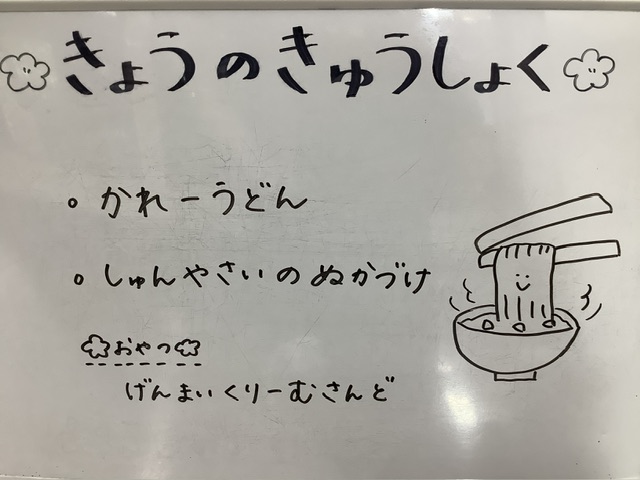 きょうのきゅうしょく
。かれーうどん
。しゅんやさいのぬかづけ
おやつ
げんまいくりーむさんど